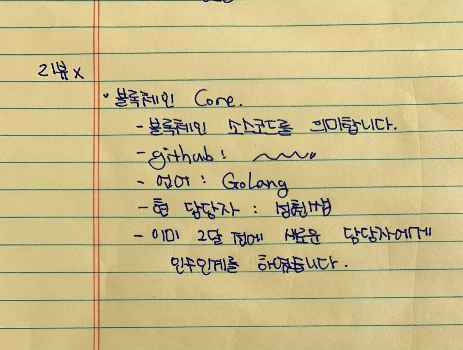 리뷰 x
· 블록체인 Core.
- 블록체인 소스코드를 의미합니다.
- github :
- 언어 : Golang
- 현 담당자 :
- 이미 2달 전에 새로운 담당자에게
인수인계를 하였습니다.